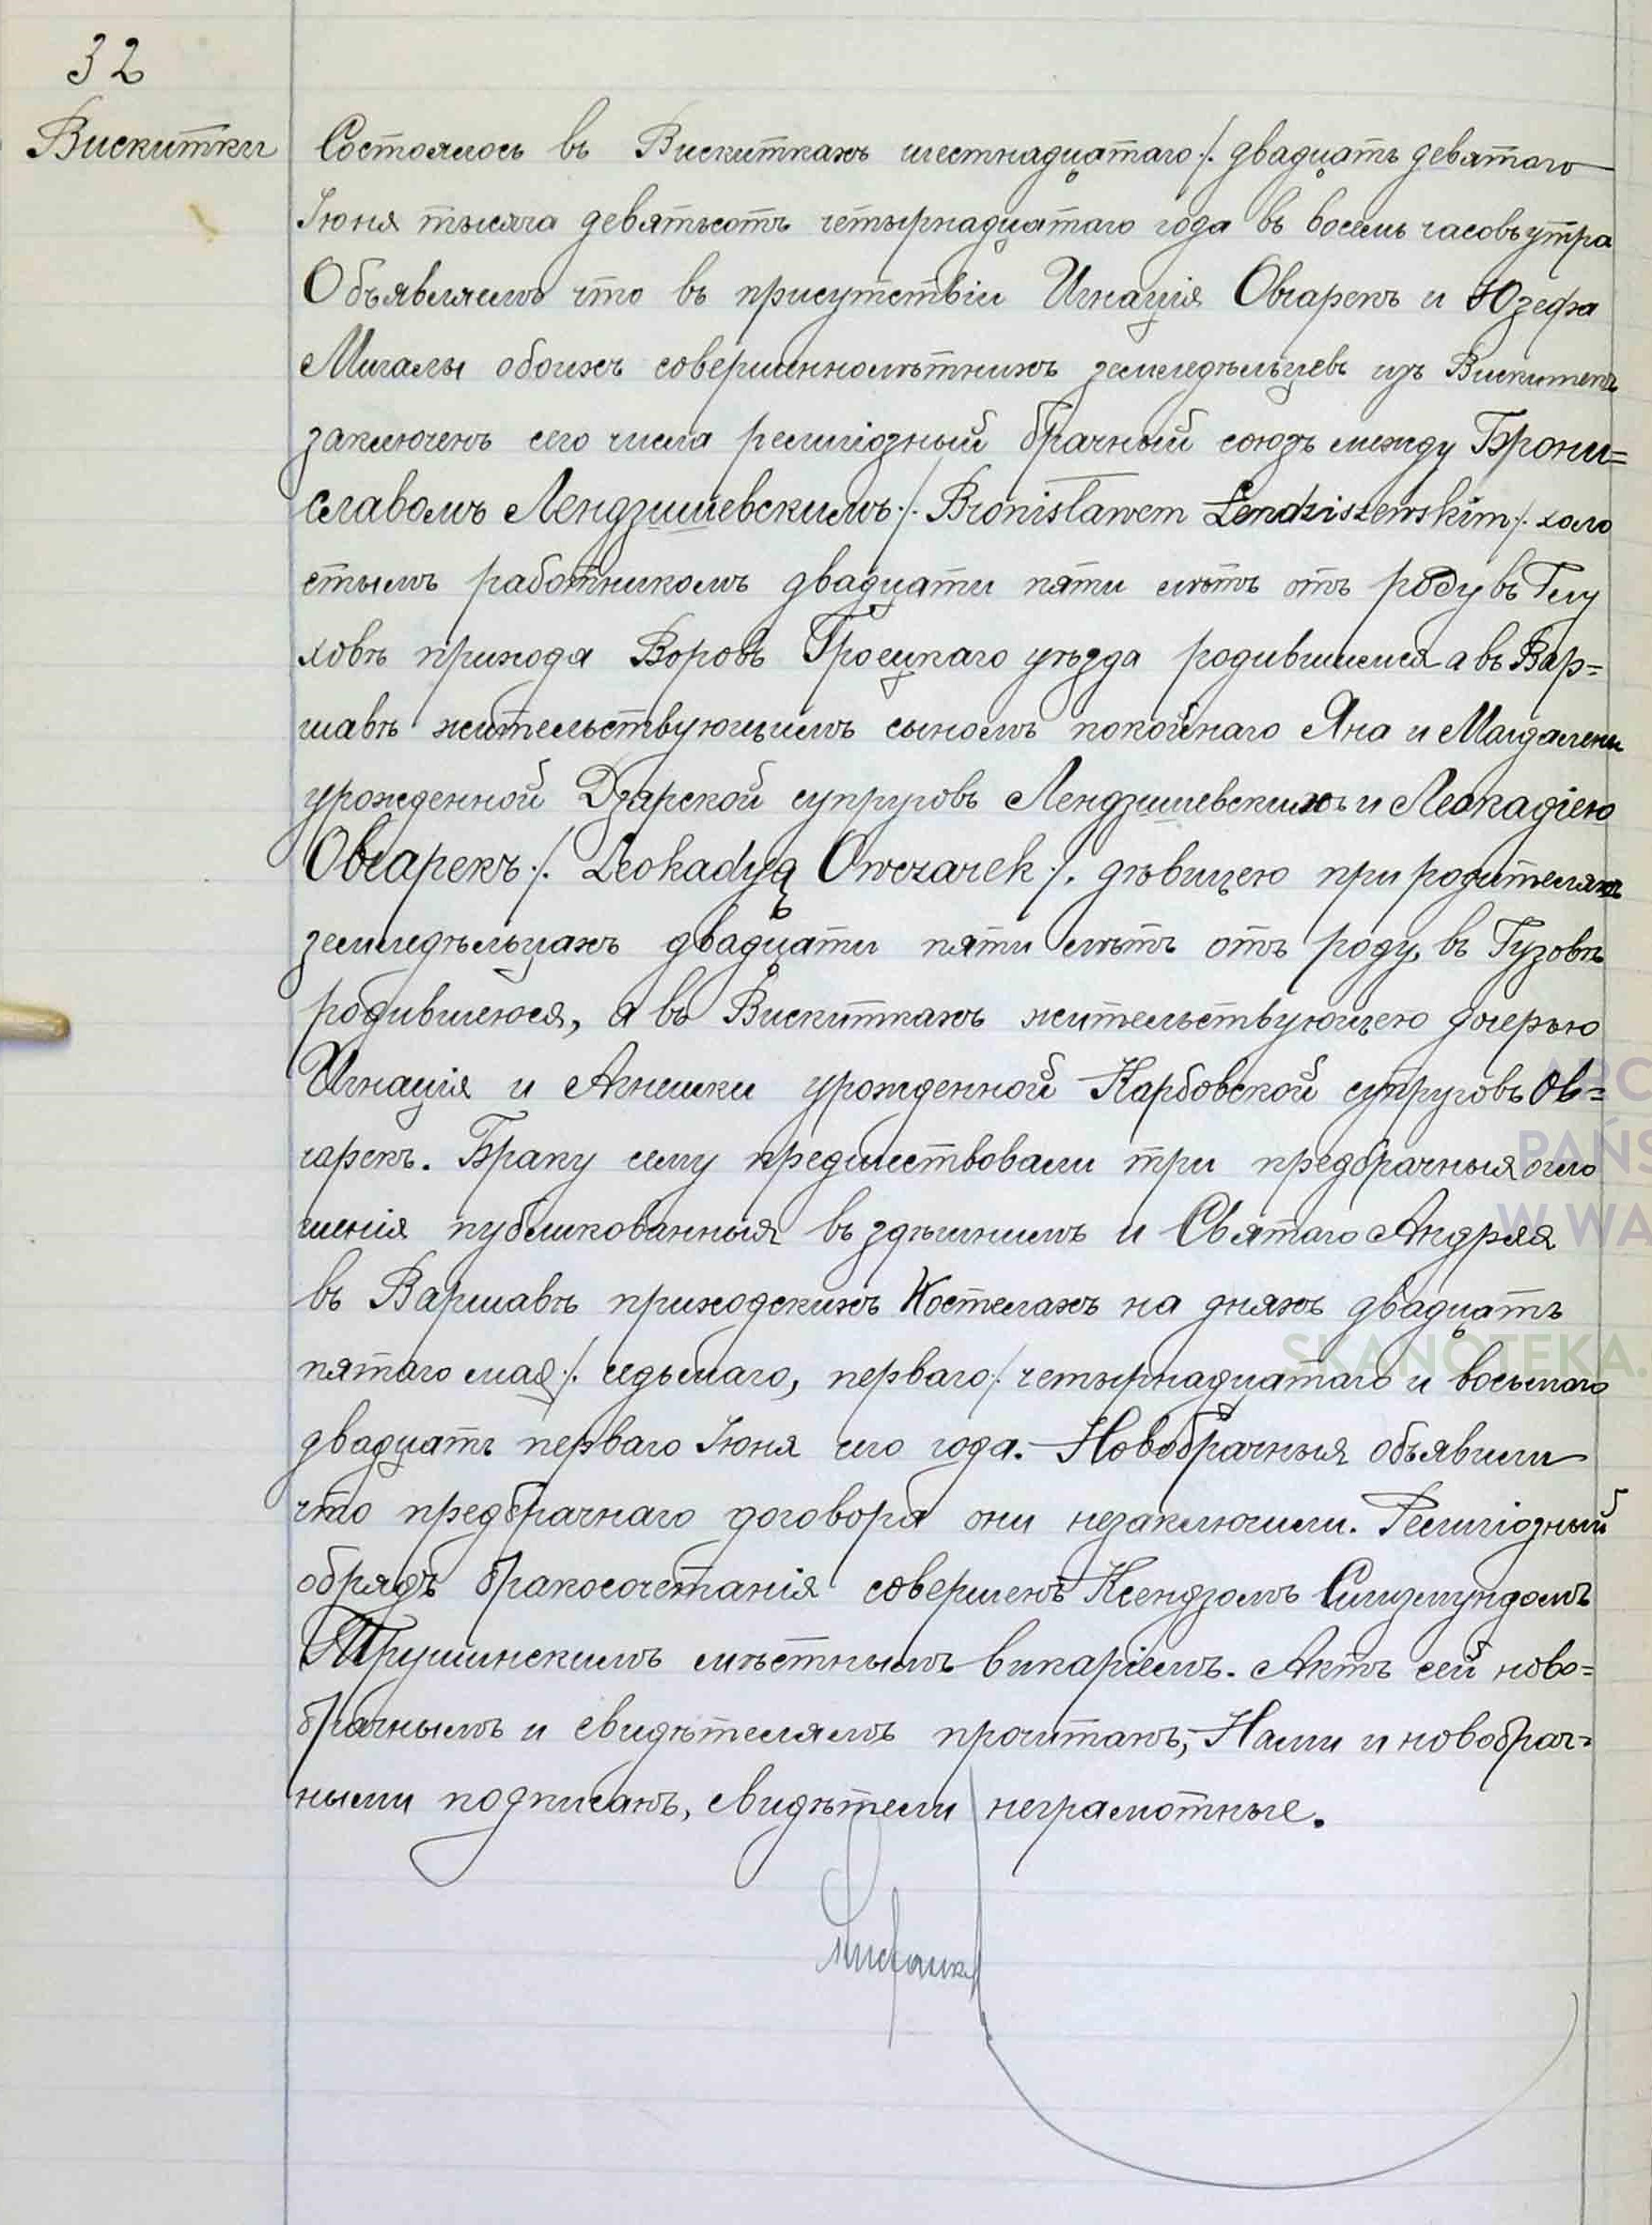 32
Вискитки
Состоялось въ Вискиткахъ шестнадцатаго /. двадцать девятаго
Іюня тысяча девятьсотъ четырнадцатаго года въ восемь часовъ утра
Объявляемъ что въ присутствіи Игнація Овчарекъ и Юзефа
Мигалы обоихъ совершеннолѣтнихъ земледѣльцевъ изъ Вискитекъ
заключенъ сего числа религіозный брачный союзъ между Брони=
славомъ Лендзишевскимъ ./. Bronisławem Lendziszewskim /. холо
стымъ работникомъ двадцати пяти лѣтъ отъ роду въ Глу
ховѣ прихода Воровъ Гроецкаго уѣзда родившимся а въ Вар=
шавѣ жительствующимъ сыномъ покойнаго Яна и Магдалены
урожденной Дзарской супруговъ Лендзишевскихъ и Леокадіею
Овчарекъ ./. Leokadyą Owczarek /. дѣвицею при родителяхъ
земледѣльцахъ двадцати пяти лѣтъ отъ роду, въ Гузовѣ
родившеюся, а въ Вискиткахъ жительствующею дочерью
Игнація и Агнешки урожденной Карбовской супруговъ Ов=
чарекъ. Браку сему предшествовали три предбрачныя огло
шенія публикованныя въ здѣшнемъ и Святаго Андрея
въ Варшавѣ приходскихъ Костелахъ на дняхъ двадцать
пятаго мая ./. седьмаго, перваго /. четырнадцатаго и восьмаго
двадцать перваго Іюня сего года. Новобрачныя объявили
что предбрачнаго договора они незаключили. Религіозный
обрядъ бракосочетанія совершенъ Ксендзомъ Сигизмундомъ
Трушинскимъ мѣстнымъ викаріемъ. Актъ сей ново=
брачнымъ и свидѣтелямъ прочитанъ, Нами и новобрач=
ными подписанъ, свидѣтели неграмотные.
ARC
PAŃS
W WA
SKANOTEKA.